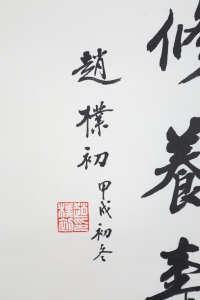 修養
趙樸初
甲戌初冬